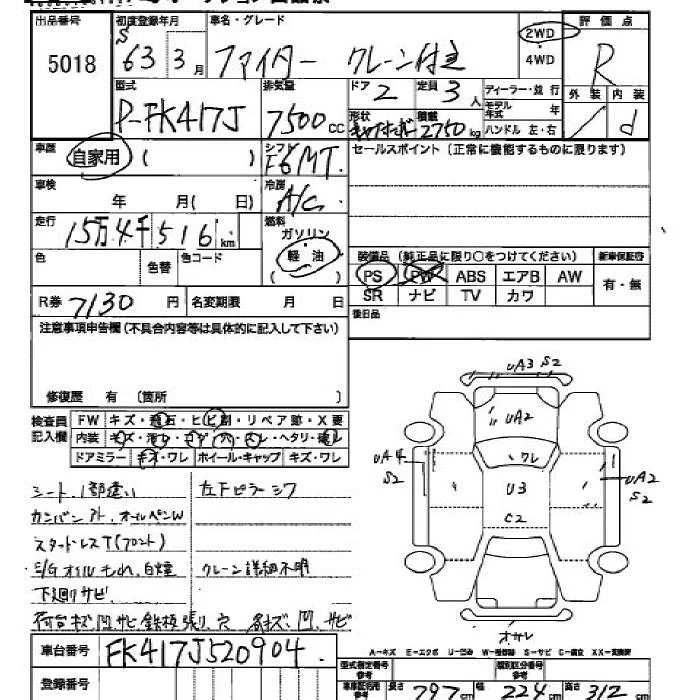 出品番号 初度登録年月 車名・グレード 評価点
5018 S63 3月 ファイター クレーン付き 2WD 4WD R
型式 排気量 ドア 2 定員 3人 ディーラー・並行 外装 内装
P-FK417J 7500cc 形状 積載 2750kg モデル年式 年 ハンドル 左・右 d
車歴 自家用 ( ) シフト F6MT. セールスポイント (正常に機能するものに限ります)
車検 年 月( 日) 冷房 A/C
走行 15万4千516km 燃料 ガソリン 軽油
色 色替 色コード 装備品 (純正品に限り○をつけてください) 新車保証書
PS PW ABS エアB AW 有・無
SR ナビ TV カワ
R券 7130円 名変期限 月 日 後日品
注意事項申告欄 (不具合内容等は具体的に記入して下さい)
修復歴 有 〔箇所 〕
検査員記入欄 FW キズ・飛石・ヒビ割・リペア跡・X要
内装 キズ・汚レ・コゲ・穴・スレ・ヘタリ・破レ
ドアミラー キズ・ワレ ホイール・キャップ キズ・ワレ
シート1部違い 左Fピラーシワ
カンバン外. オールペンW
スタッドレスT(フロント)
E/Gオイルもれ, 白煙 クレーン詳細不明
下廻りサビ
荷台キズ凹サビ鉄板張り, 穴 各キズ, 凹, サビ
UA3 S2
UA2
ワレ
UA4 S2
U3
UA2 S2
C2
オサレ
車台番号 FK417J520904.
A-キズ E-エクボ U-凹み W-補修跡 S-サビ C-腐食 XX-交換済
登録番号 型式指定番号 参考 類別区分番号 参考
車検証記載 参考 長さ 797cm 幅 224cm 高さ 312cm